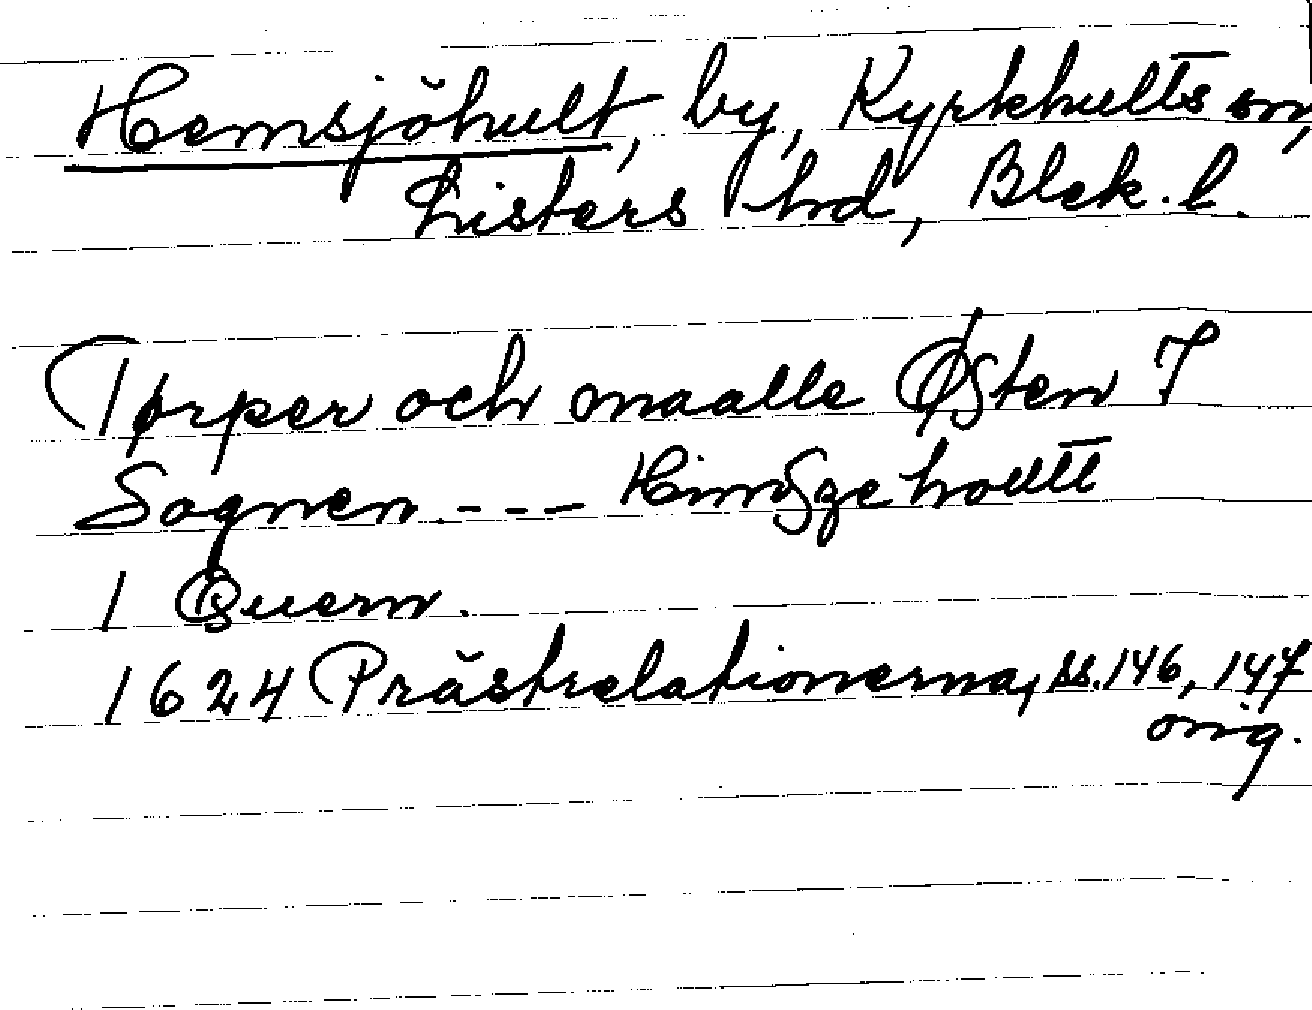 Hemsjöhult, by, Kyrkhults sn,
Listers hd, Blek. l.
Tørper och maalle Østen I
Sognen - - - HimSgehoultt
1 Quern.
1624 Prästrelationerna, ss. 146, 147
orig.